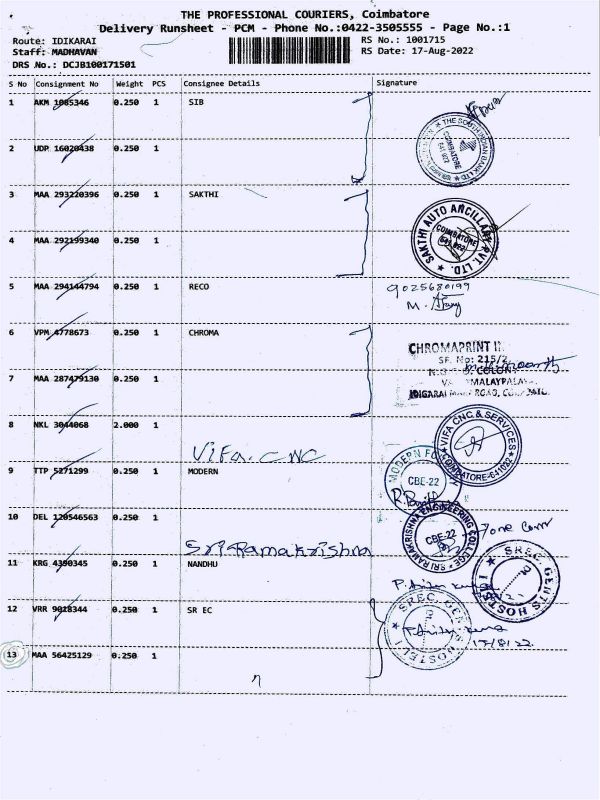 THE PROFESSIONAL COURIERS, Coimbatore
Delivery Runsheet - PCM - Phone No.:0422-3505555 - Page No.:1
Route: IDIKARAI
RS No.: 1001715
Staff: MADHAVAN
RS Date: 17-Aug-2022
DRS No.: DCJB100171501
S No Consignment No Weight PCS Consignee Details Signature
1 AKM 1005346 0.250 1 SIB
THE SOUTH INDIAN BANK LTD. COIMBATORE 641 022
2 UDP 16020438 0.250 1
3 MAA 293220396 0.250 1 SAKTHI
SAKTHI AUTO ANCILLARY PVT. LTD. COIMBATORE 641 022
4 MAA 292199340 0.250 1
5 MAA 294144794 0.250 1 RECO
9025680199
M.
6 VPM 4778673 0.250 1 CHROMA
CHROMAPRINT
SF. No: 215/2,
COLONY
7 MAA 287479130 0.250 1
IDIGARAI ROAD,
8 NKL 3044068 2.000 1
VIFA CNC
VIFA CNC & SERVICES COIMBATORE-641022
9 TTP 5271299 0.250 1 MODERN
MODERN
CBE-22
10 DEL 120546563 0.250 1
Sri Ramakrishna
SRI RAMAKRISHNA ENGINEERING COLLEGE CBE-22
11 KRG 4390345 0.250 1 NANDHU
SREC. GENTS HOSTEL
12 VRR 9018344 0.250 1 SR EC
SREC. GENTS HOSTEL
17/8/22
13 MAA 56425129 0.250 1